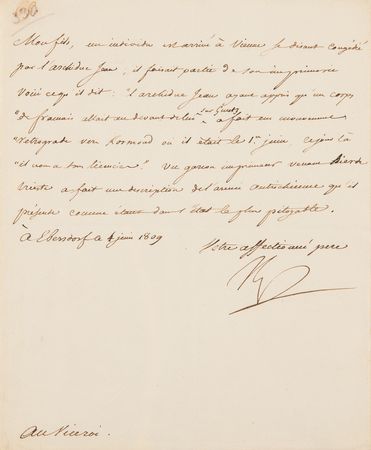 Mon fils, un individu est arrivé à Vienne se disant congédié
par l'archiduc Jean, il faisait partie de son imprimerie
Voici ce qu'il dit: "l'archiduc Jean ayant appris qu'un corps
"de français allait au devant de lui sur Guntz a fait un mouvement
"retrograde vers Kormond où il était le 1er juin ce jour là
"il m'en a
Un garçon imprimeur venant
a fait une description de l'armée autrichienne qu'il
présente comme étant dans l'état le plus pitoyable.
à Ebersdorf le 4 juin 1809
Votre affectionné pere
Au Viceroi.